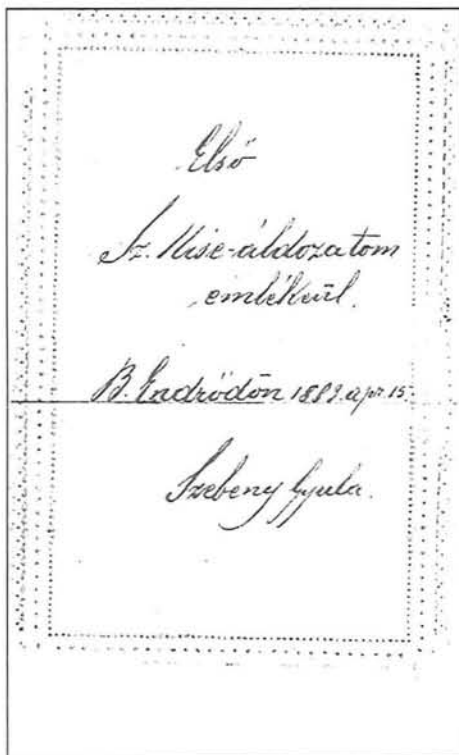 Első
Sz. Mise-áldozatom
emlékeül.
B. Endrődön 1883. apr. 15.
Szebeny Gyula.